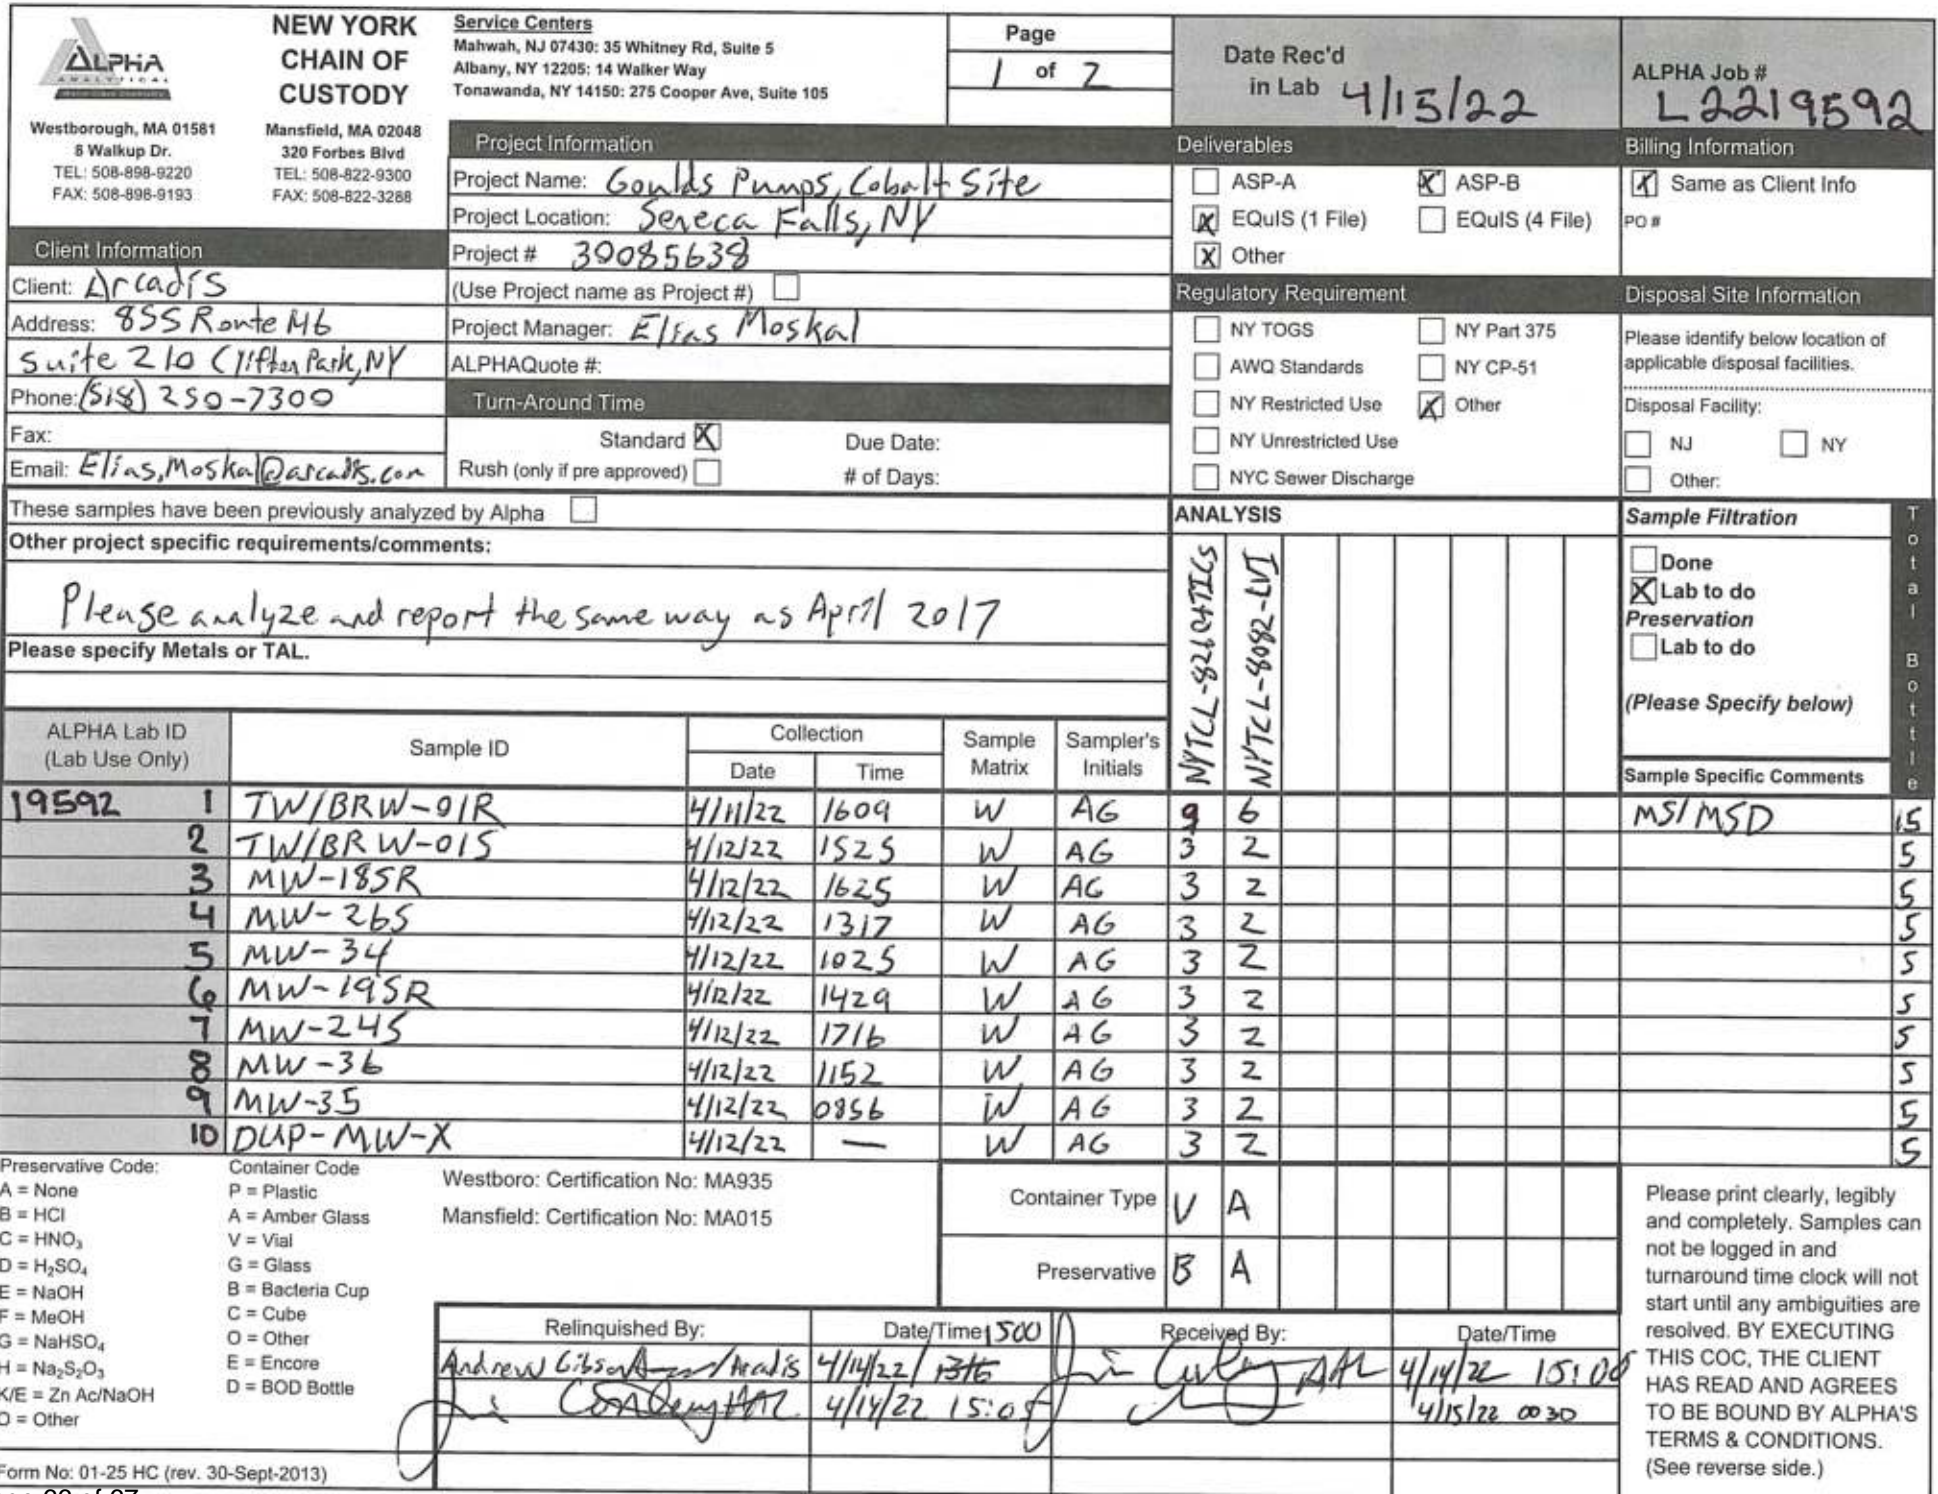 ALPHA
ANALYTICAL
NEW YORK
CHAIN OF
CUSTODY
Westborough, MA 01581
8 Walkup Dr.
TEL: 508-898-9220
FAX: 508-898-9193
Mansfield, MA 02048
320 Forbes Blvd
TEL: 508-822-9300
FAX: 508-822-3288
Service Centers
Mahwah, NJ 07430: 35 Whitney Rd, Suite 5
Albany, NY 12205: 14 Walker Way
Tonawanda, NY 14150: 275 Cooper Ave, Suite 105
Page
1 of 2
Date Rec'd
in Lab 4/15/22
ALPHA Job #
L2219592
Client Information
Client: Arcadis
Address: 855 Route 146
Suite 210 Clifton Park, NY
Phone: (518) 250-7300
Fax:
Email: Elias.Moskal@arcadis.com
Project Information
Project Name: Goulds Pumps, Cobalt Site
Project Location: Seneca Falls, NY
Project # 30085638
(Use Project name as Project #)
Project Manager: Elias Moskal
ALPHAQuote #:
Turn-Around Time
Standard X Due Date:
Rush (only if pre approved) # of Days:
Deliverables
ASP-A X ASP-B
X EQuIS (1 File) EQuIS (4 File)
X Other
Regulatory Requirement
NY TOGS NY Part 375
AWQ Standards NY CP-51
NY Restricted Use X Other
NY Unrestricted Use
NYC Sewer Discharge
Billing Information
X Same as Client Info
PO #
Disposal Site Information
Please identify below location of
applicable disposal facilities.
Disposal Facility:
NJ NY
Other:
These samples have been previously analyzed by Alpha
Other project specific requirements/comments:
Please analyze and report the same way as April 2017
Please specify Metals or TAL.
ANALYSIS
NYTCL-8260+TICs
NYTCL-8082-LVI
Sample Filtration
Done
X Lab to do
Preservation
Lab to do
(Please Specify below)
Sample Specific Comments
Total Bottle
ALPHA Lab ID
(Lab Use Only)
Sample ID
Collection
Date Time
Sample
Matrix
Sampler's
Initials
19592 1 TW/BRW-01R 4/11/22 1609 W AG 9 6 MS/MSD 15
2 TW/BRW-01S 4/12/22 1525 W AG 3 2 5
3 MW-18SR 4/12/22 1625 W AG 3 2 5
4 MW-26S 4/12/22 1317 W AG 3 2 5
5 MW-34 4/12/22 1025 W AG 3 2 5
6 MW-19SR 4/12/22 1429 W AG 3 2 5
7 MW-24S 4/12/22 1716 W AG 3 2 5
8 MW-36 4/12/22 1152 W AG 3 2 5
9 MW-35 4/12/22 0856 W AG 3 2 5
10 DUP-MW-X 4/12/22 — W AG 3 2 5
Preservative Code:
A = None
B = HCl
C = HNO₃
D = H₂SO₄
E = NaOH
F = MeOH
G = NaHSO₄
H = Na₂S₂O₃
K/E = Zn Ac/NaOH
O = Other
Container Code
P = Plastic
A = Amber Glass
V = Vial
G = Glass
B = Bacteria Cup
C = Cube
O = Other
E = Encore
D = BOD Bottle
Westboro: Certification No: MA935
Mansfield: Certification No: MA015
Container Type V A
Preservative B A
Relinquished By: Date/Time 1500 Received By: Date/Time
Andrew Gibson /Arcadis 4/14/22 / AAL 4/14/22 15:00
4/14/22 15:05 4/15/22 0030
Please print clearly, legibly
and completely. Samples can
not be logged in and
turnaround time clock will not
start until any ambiguities are
resolved. BY EXECUTING
THIS COC, THE CLIENT
HAS READ AND AGREES
TO BE BOUND BY ALPHA'S
TERMS & CONDITIONS.
(See reverse side.)
Form No: 01-25 HC (rev. 30-Sept-2013)